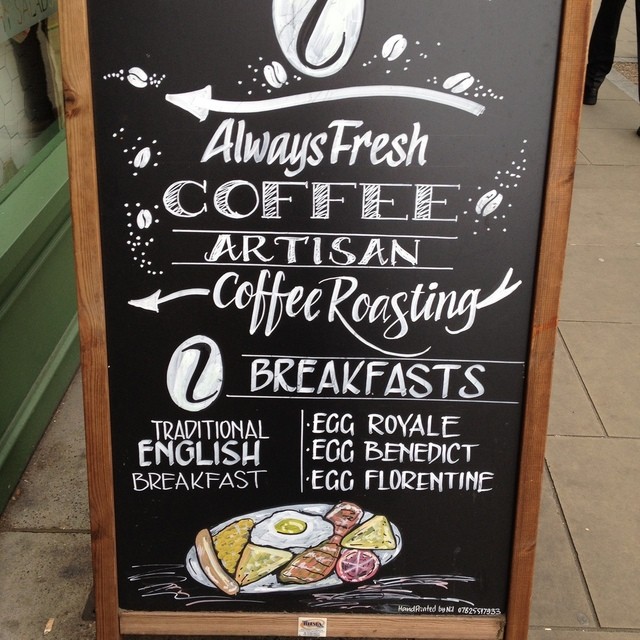 Always Fresh
COFFEE
ARTISAN
Coffee Roasting
BREAKFASTS
TRADITIONAL
ENGLISH
BREAKFAST
·EGG ROYALE
·EGG BENEDICT
·EGG FLORENTINE